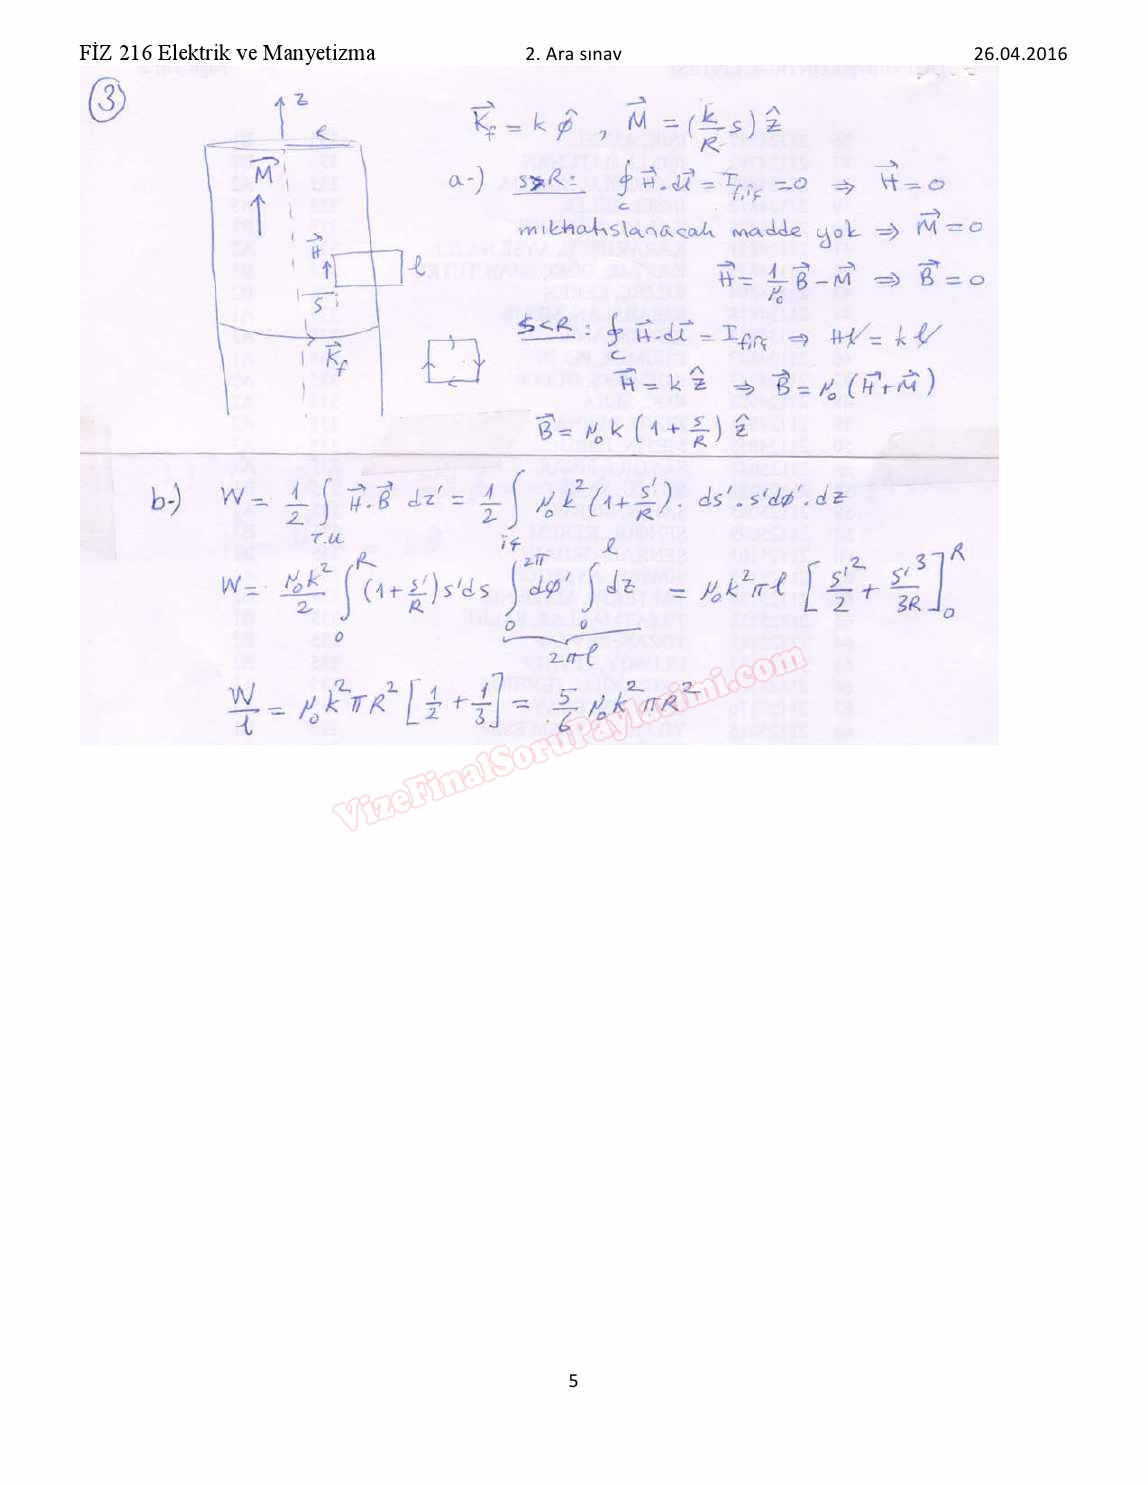 FİZ 216 Elektrik ve Manyetizma 2. Ara sınav 26.04.2016
③
z
R
M⃗
H⃗
l
s
K⃗_f
K⃗_f = k φ̂ , M⃗ = (k/R s) ẑ
a-) s>R: ∮_C H⃗.dl⃗ = I_f,iç = 0 ⇒ H⃗ = 0
mıknatıslanacak madde yok ⇒ M⃗ = 0
H⃗ = 1/μ₀ B⃗ − M⃗ ⇒ B⃗ = 0
s<R: ∮_C H⃗.dl⃗ = I_f,iç ⇒ Hl = kl
H⃗ = k ẑ ⇒ B⃗ = μ₀ (H⃗+M⃗)
B⃗ = μ₀ k (1 + s/R) ẑ
b-) W = 1/2 ∫_T.U H⃗.B⃗ dz' = 1/2 ∫_iç μ₀k² (1+ s'/R). ds'.s'dφ'.dz
W = μ₀k²/2 ∫₀^R (1+ s'/R) s'ds ∫₀^2π dφ' ∫₀^l dz = μ₀k²πl [s'²/2 + s'³/3R]₀^R
2πl
W/l = μ₀k²πR² [1/2 + 1/3] = 5/6 μ₀k²πR²
VizeFinalSoruPaylasimi.com
5